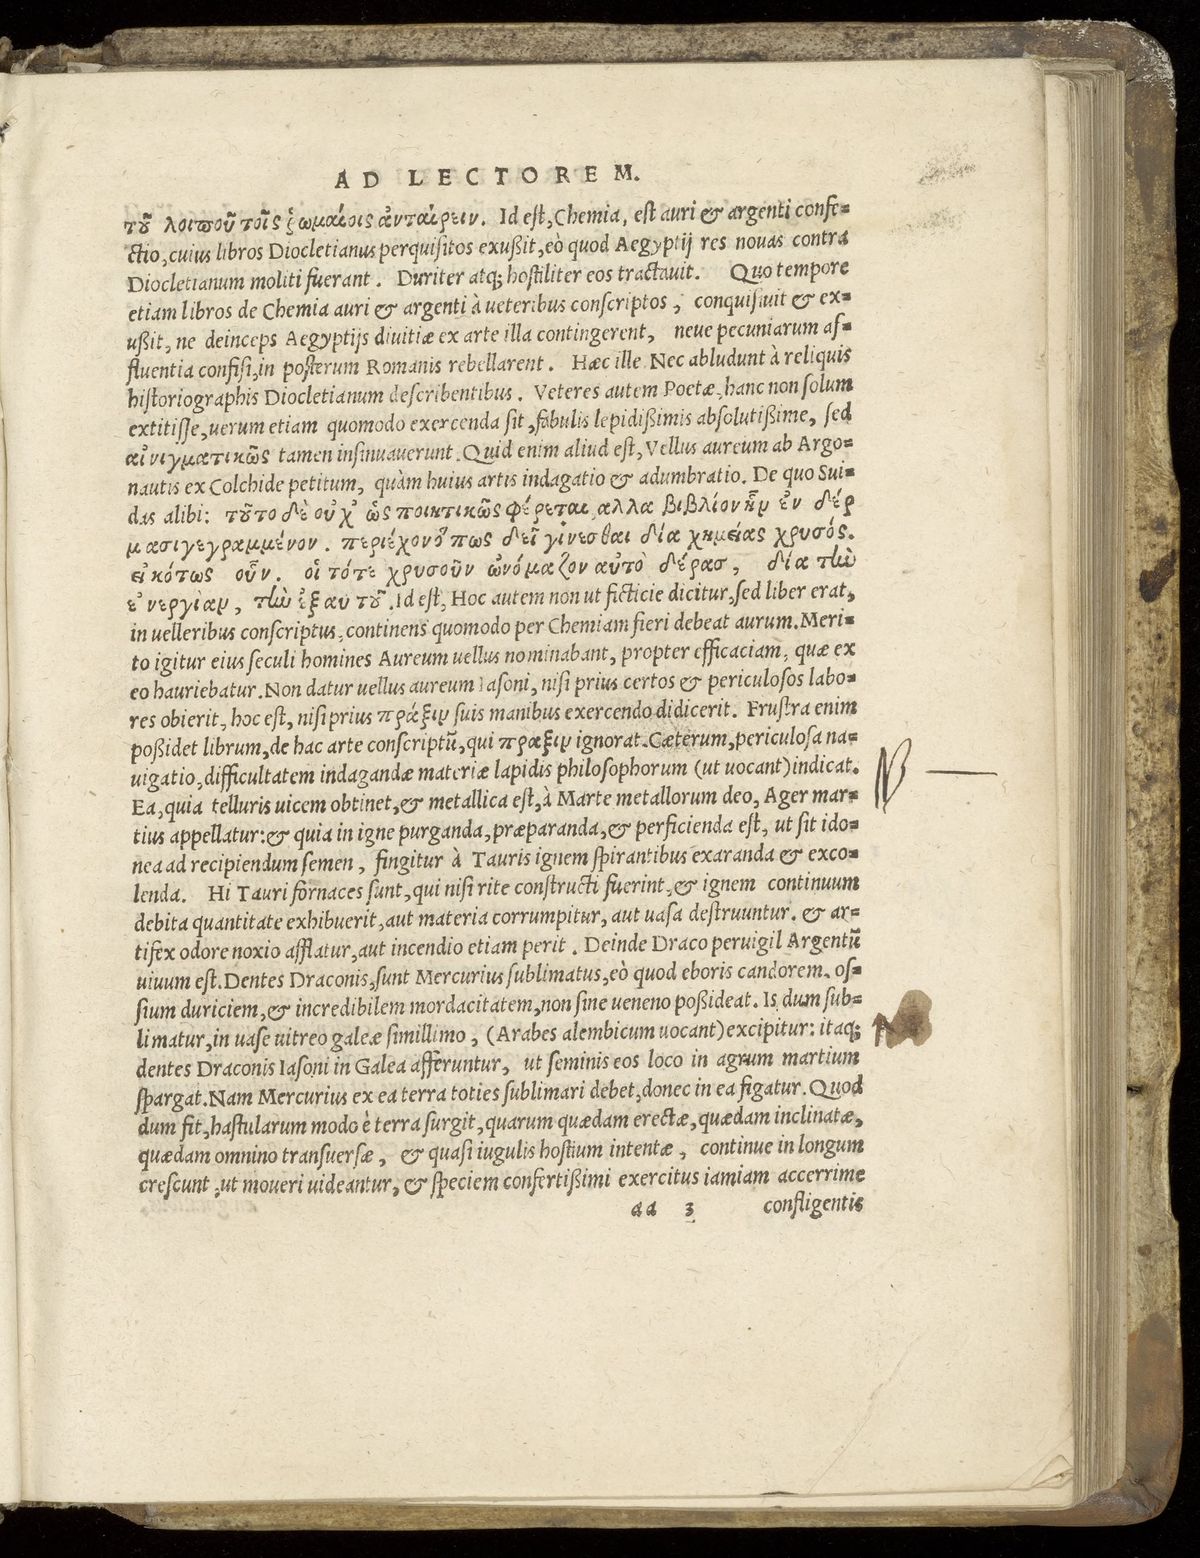 AD LECTOREM.
τȣ͂ λοιποῦ τοῖς ῥωμαίοις ἀνταίρειν. Id est, Chemia, est auri & argenti confe=
ctio, cuius libros Diocletianus perquisitos exußit, eò quod Aegyptij res nouas contra
Diocletianum moliti fuerant. Duriter atq; hostiliter eos tractauit. Quo tempore
etiam libros de Chemia auri & argenti à ueteribus conscriptos, conquisiuit & ex=
ußit, ne deinceps Aegyptijs diuitiæ ex arte illa contingerent, neue pecuniarum af=
fluentia confisi, in posterum Romanis rebellarent. Hæc ille. Nec abludunt à reliquis
historiographis Diocletianum describentibus. Veteres autem Poetæ, hanc non solum
extitisse, uerum etiam quomodo exercenda sit, fabulis lepidißimis absolutißime, sed
αἰνιγματικῶς tamen insinuauerunt. Quid enim aliud est, Vellus aureum ab Argo=
nautis ex Colchide petitum, quàm huius artis indagatio & adumbratio. De quo Sui=
das alibi: τȣ͂το δὲ οὐχ̓ ὡς ποιητικῶς φέρεται, αλλα βιβλίον ἦν ἐν δέρ
μασι γεγραμμένον. περιέχον ὅπως δεῖ γίνεσθαι δία χημείας χρυσός.
εἰκότως οὖν. οἱ τότε χρυσοῦν ὠνόμαζον αὐτὸ δέρασ, δία τὼ
ἐνεργίαν, τὼ ἐξ αυτȣ͂. Id est, Hoc autem non ut ficticie dicitur, sed liber erat,
in uelleribus conscriptus, continens quomodo per Chemiam fieri debeat aurum. Meri=
to igitur eius seculi homines Aureum uellus nominabant, propter efficaciam, quæ ex
eo hauriebatur. Non datur uellus aureum Iasoni, nisi prius certos & periculosos labo=
res obierit, hoc est, nisi prius πράξιν suis manibus exercendo didicerit. Frustra enim
poßidet librum, de hac arte conscriptũ, qui πραξιν ignorat. Cæterum, periculosa na=
uigatio, difficultatem indagandæ materiæ lapidis philosophorum (ut uocant) indicat.
Ea, quia telluris uicem obtinet, & metallica est, à Marte metallorum deo, Ager mar=
tius appellatur: & quia in igne purganda, præparanda, & perficienda est, ut sit ido=
nea ad recipiendum semen, fingitur à Tauris ignem spirantibus exaranda & exco=
lenda. Hi Tauri fornaces sunt, qui nisi rite constructi fuerint, & ignem continuum
debita quantitate exhibuerit, aut materia corrumpitur, aut uasa destruuntur. & ar=
tifex odore noxio afflatur, aut incendio etiam perit. Deinde Draco peruigil Argentũ
uiuum est. Dentes Draconis, sunt Mercurius sublimatus, eò quod eboris candorem, os=
sium duriciem, & incredibilem mordacitatem, non sine ueneno poßideat. Is dum sub=
limatur, in uase uitreo galeæ simillimo, (Arabes alembicum uocant) excipitur: itaq;
dentes Draconis Iasoni in Galea afferuntur, ut seminis eos loco in agrum martium
spargat. Nam Mercurius ex ea terra toties sublimari debet, donec in ea figatur. Quod
dum fit, hastularum modo è terra surgit, quarum quædam erectæ, quædam inclinatæ,
quædam omnino transuersæ, & quasi iugulis hostium intentæ, continue in longum
crescunt, ut moueri uideantur, & speciem confertißimi exercitus iamiam accerrime
aa 3 confligentis
NB